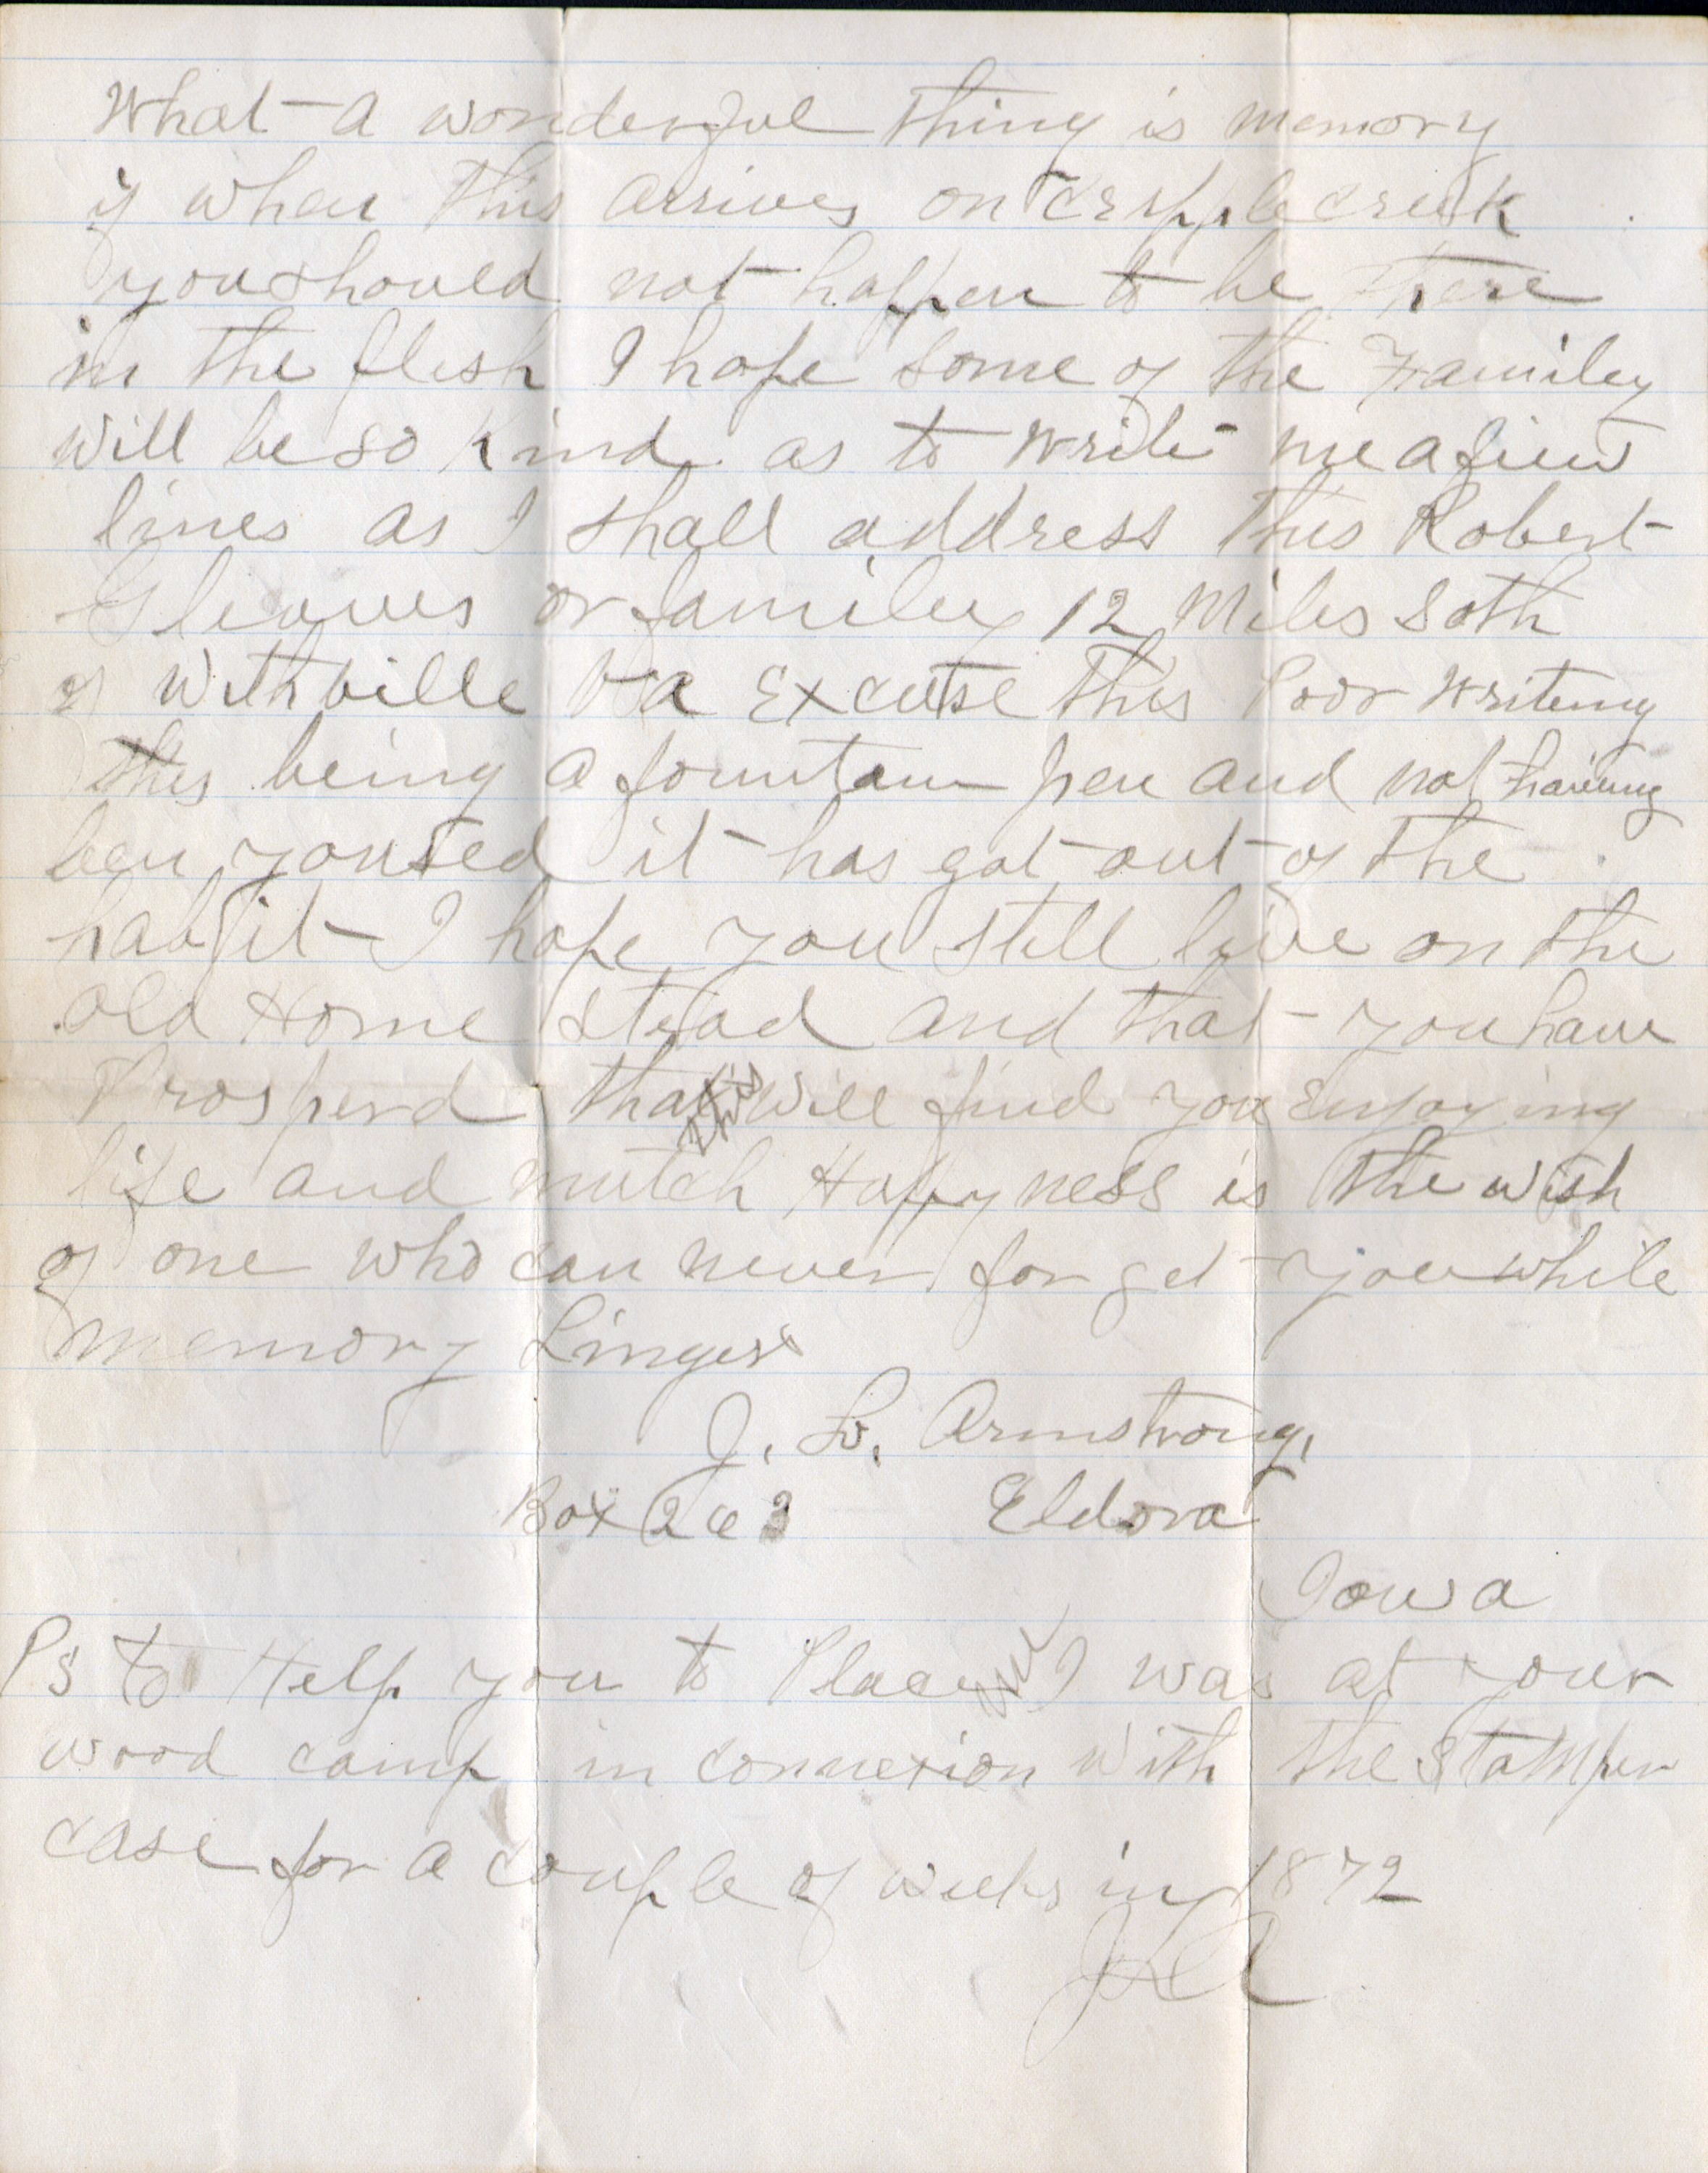 What a wonderful thing is memory
if when this arrives on Cripple creek
you should not happen to be there
in the flesh I hope some of the Familey
will be so kind as to write me a fiew
lines as I shall address this Robert
Gleaves or familey 12 Miles Soth
of Withville Va Excuse this Poor writeing
this being a fountain pen and not haveing
ben yoused it has got out of the
habit I hope you still live on the
old Home Stead and that you have
Prosperd that this will find you enjoying
life and mutch Happyness is the wish
of one who can never forget you while
memory Lingers
J. L. Armstrong,
Box Eldora
Iowa
Ps to Help you to Place me I was at your
wood camp in connexion with the Stamper
case for a couple of weeks in 1872
JLA